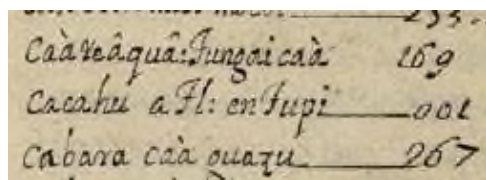 Caàreâquâ: Jungai caà 169
Cacahú a Fl: en Tupi 001
Cabara caà ouaçu 267